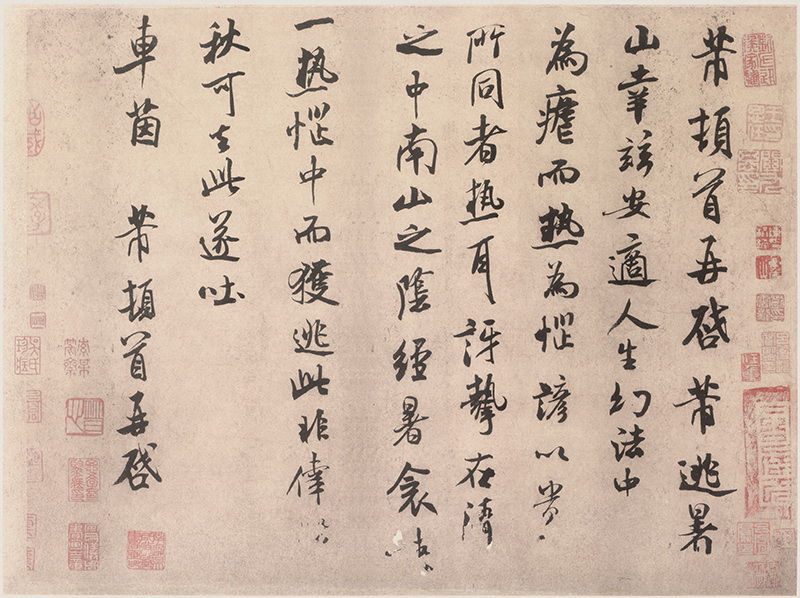 芾頓首再啓芾逃暑
山幸茲安適人生幻法中
為瘧而熱為惱諺以貴
所同者熱耳訝摯在清
之中南山之陰經暑衾
一熱惱中而獲逃此非幸
秋可去此遂吐
車茵 芾頓首再啓